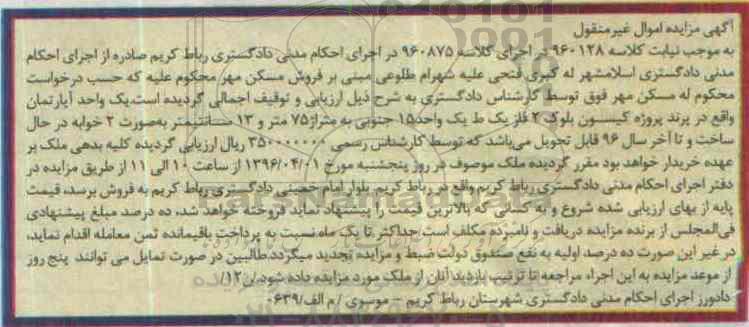 آگهی مزایده اموال غیرمنقول
به موجب نیابت کلاسه ۹۶۰۱۲۸ در اجرای کلاسه ۹۶۰۸۷۵ در اجرای احکام مدنی دادگستری رباط کریم صادره از اجرای احکام
مدنی دادگستری اسلامشهر له کبری فتحی علیه شهرام طلوعی مبنی بر فروش مسکن مهر محکوم علیه که حسب درخواست
محکوم له مسکن مهر فوق توسط کارشناس دادگستری به شرح ذیل ارزیابی و توقیف اجمالی گردیده است.یک واحد آپارتمان
واقع در پرند پروژه کیسون بلوک ۲ فاز یک ط یک واحد۱۵ جنوبی به متراژ۷۵ متر و ۱۳ سانتیمتر به‌صورت ۲ خوابه در حال
ساخت و تا آخر سال ۹۶ قابل تحویل می‌باشد که توسط کارشناس رسمی ۳۵۰۰۰۰۰۰۰ ریال ارزیابی گردیده کلیه بدهی ملک بر
عهده خریدار خواهد بود مقرر گردیده ملک موصوف در روز پنجشنبه مورخ ۱۳۹۶/۰۴/۰۱ از ساعت ۱۰ الی ۱۱ از طریق مزایده در
دفتر اجرای احکام مدنی دادگستری رباط کریم واقع در رباط کریم. بلوار امام خمینی دادگستری رباط کریم به فروش برسد، قیمت
پایه از بهای ارزیابی شده شروع و به کسانی که بالاترین قیمت را پیشنهاد نماید فروخته خواهد شد، ده درصد مبلغ پیشنهادی
فی‌المجلس از برنده مزایده دریافت و نامبرده مکلف است حداکثر تا یک ماه نسبت به پرداخت باقیمانده ثمن معامله اقدام نماید،
در غیر این صورت ده درصد اولیه به نفع صندوق دولت ضبط و مزایده تجدید میگردد.طالبین در صورت تمایل می توانند پنج روز
از موعد مزایده به این اجراء مراجعه تا ترتیب بازدید آنان از ملک مورد مزایده داده شود./ن۱۲/
دادورز اجرای احکام مدنی دادگستری شهرستان رباط کریم – موسوی /م الف/۰۶۳۹